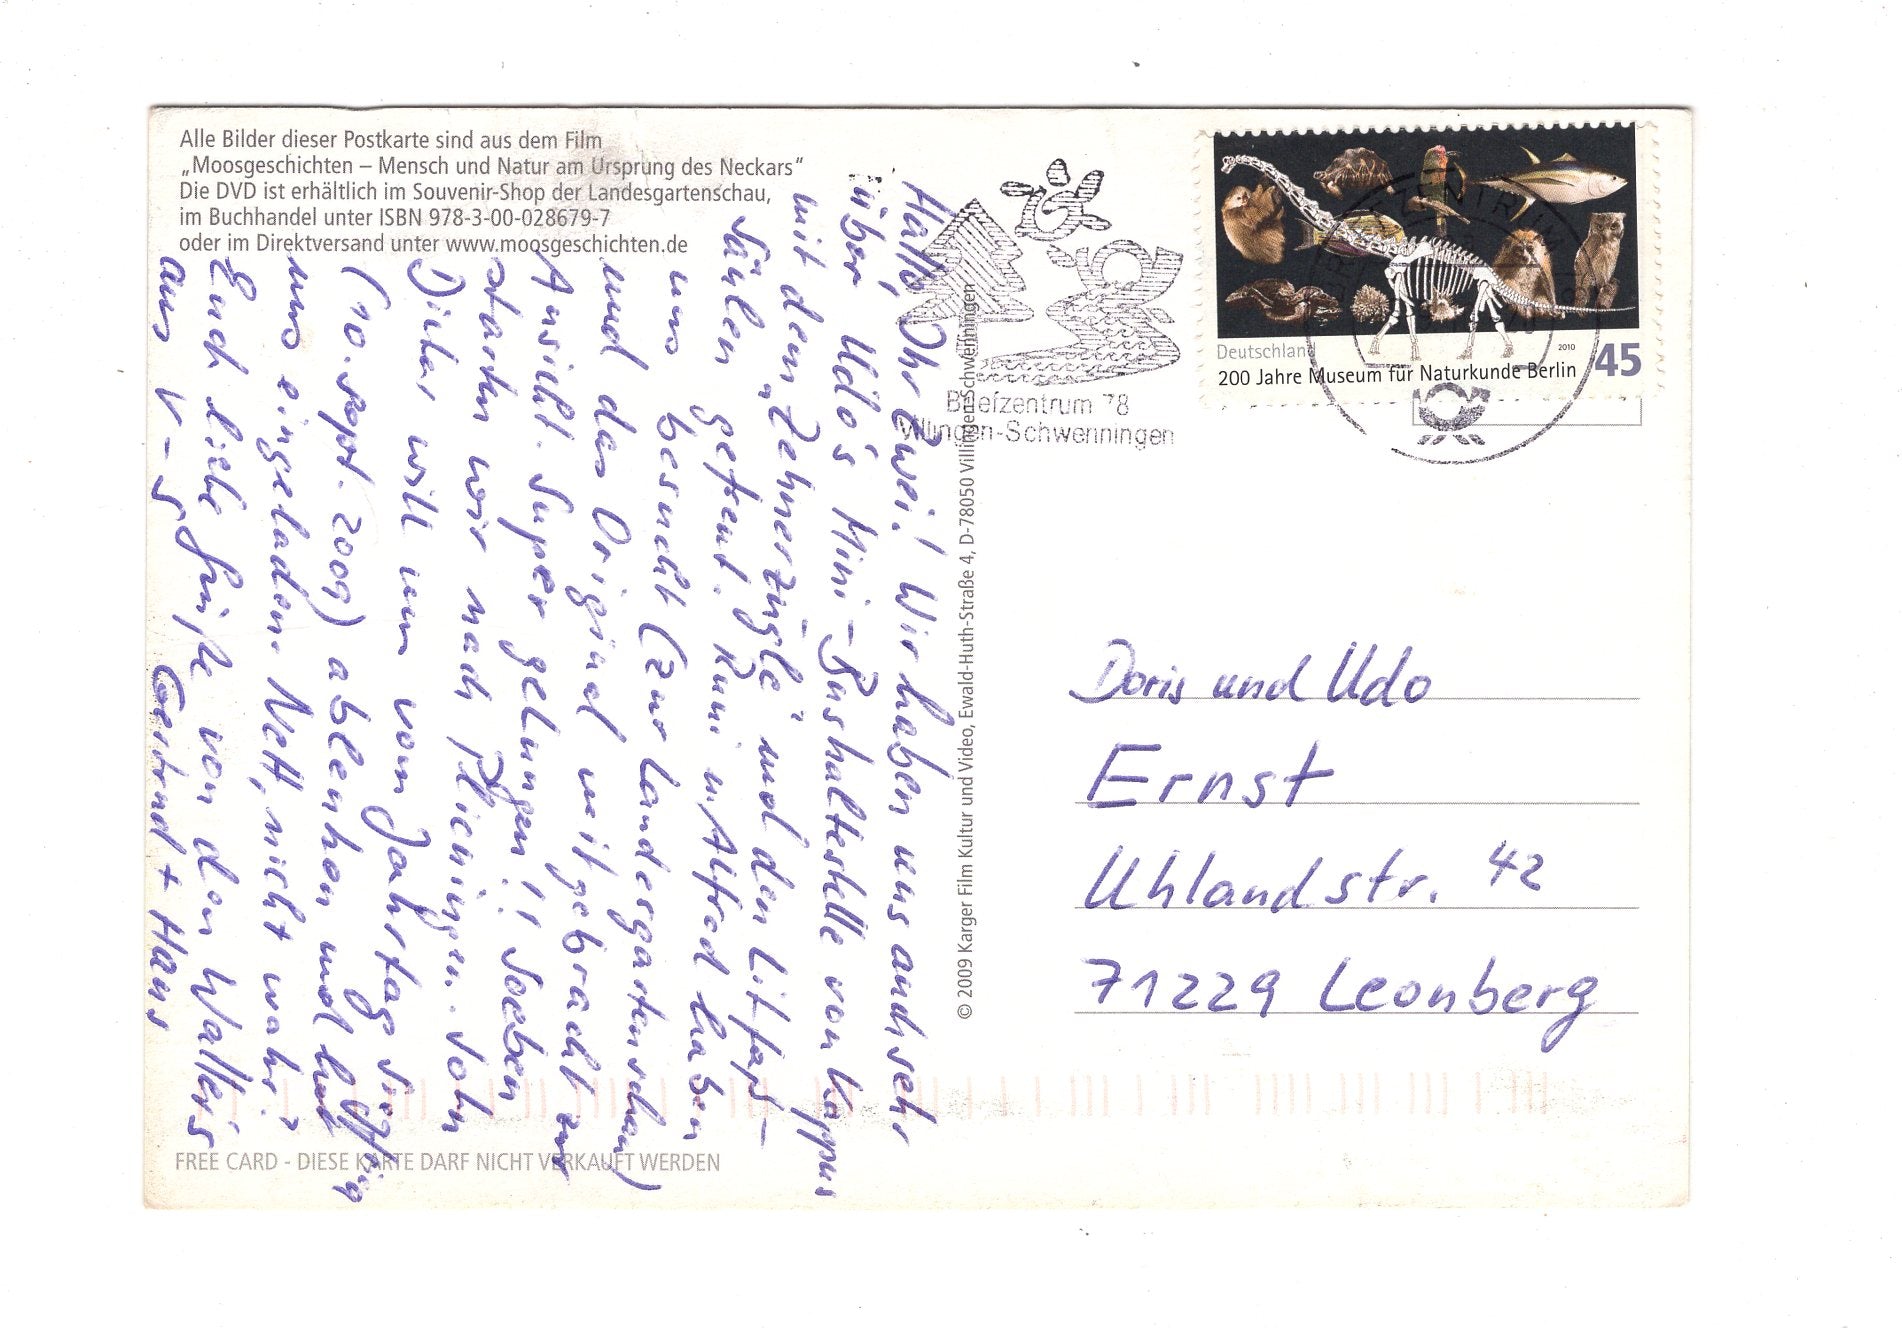 Alle Bilder dieser Postkarte sind aus dem Film
„Moosgeschichten – Mensch und Natur am Ursprung des Neckars“
Die DVD ist erhältlich im Souvenir-Shop der Landesgartenschau,
im Buchhandel unter ISBN 978-3-00-028679-7
oder im Direktversand unter www.moosgeschichten.de
Hallo, Ihr Zwei! Wir haben uns auch sehr
über Udo's Mini-Bushaltestelle von Kappus
mit dem "Zehnerzügle" und den Litfaß-
säulen gefreut. Rumi u. Alfred haben
uns besucht (zur Landesgartenschau)
und das Original mitgebracht zur
Ansicht. Super gelungen!! Soeben
starten wir nach Plieningen. Sohn
Dieter will nun vom Jahrtag
(10. Sept. 2009) ablenken und hat
uns eingeladen. Nett, nicht wahr?
Euch liebe Grüße von den Walleris
aus V-S
Gertrud + Hans
© 2009 Karger Film Kultur und Video, Ewald-Huth-Straße 4, D-78050 Villingen-Schwenningen
FREE CARD - DIESE KARTE DARF NICHT VERKAUFT WERDEN
Briefzentrum 78
Villingen-Schwenningen
Deutschland
2010
45
200 Jahre Museum für Naturkunde Berlin
Doris und Udo
Ernst
Uhlandstr. 42
71229 Leonberg